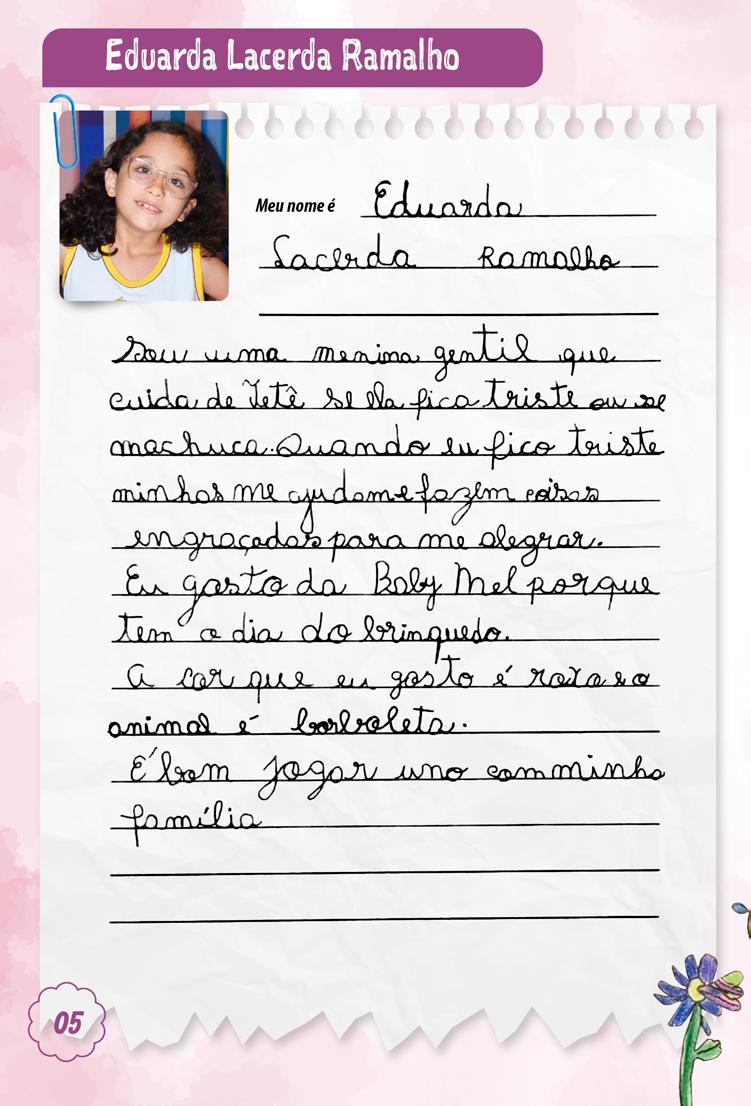 Eduarda Lacerda Ramalho
Meu nome é Eduarda
Lacerda Ramalho
Sou uma menina gentil que
cuida de Tetê se ela fica triste ou se
machuca. Quando eu fico triste
minhas me ajudam e fazem coisas
engraçadas para me alegrar.
Eu gosto da Baby Mel porque
tem o dia do brinquedo.
A cor que eu gosto é roxa e o
animal é borboleta.
É bom jogar uno com minha
família
05